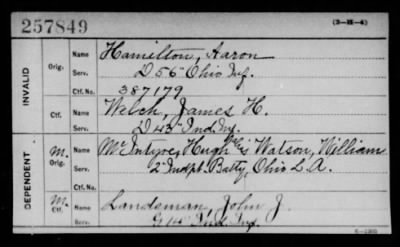 257849 (3-H-4)
INVALID
Orig.
Name Hamilton, Aaron
Serv. D 56" Ohio Inf.
Ctf. No. 387179
Ctf.
Name Welch, James H.
Serv. D 43" Ind. Inf.
DEPENDENT
M.
Orig.
Name McIntyre, Hugh Watson, William
Serv. 2" Indpt. Batty, Ohio L. A.
Ctf. No.
M.
Ctf.
Name Landsman, John J.
Serv. Ind. Inf.